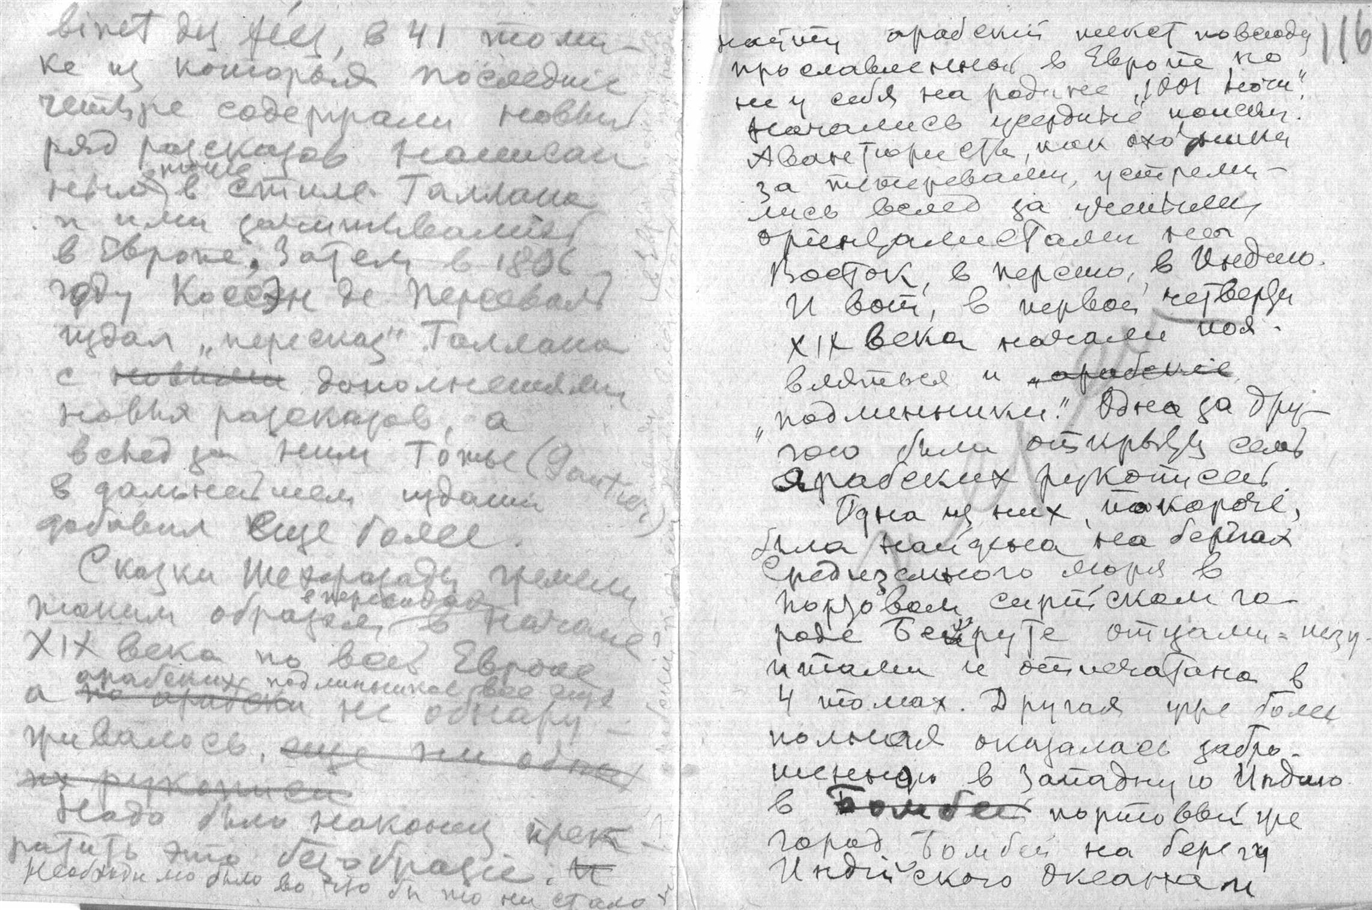 binet des fées, в 41 томи-
ке из которыя последние
четыре содержали новый
ряд рассказов написан
ных тоже в стиле Галлана
и ими зачитывались
в Европе. Затем в 1806
году Коссэн де Персеваль
издал „пересказ" Галлана
с новыми дополнениями
новыя рассказов, а
вслед за ним Готье (Gautier)
в дальнейшем издании
добавил еще более.
Сказки Шехеразады гремели
таким образом в пересказах в начале
XIX века по всей Европе
а по арабски арабских подлинников все еще не обнару-
живалось, еще ни одной
их рукописи
Надо было наконец прек-
ратить это безобразіе. И
Необходимо было во что бы то ни стало
116
найти арабскій текст повсюду
прославленной в Европе но
не у себя на родине „1001 ночи".
Начались усердные поиски.
Авантюристы, как охотники
за тетеревами, устреми-
лись вслед за учеными
оріенталистами на
Восток, в Персію, в Индію.
И вот, в первой четверти
XIX века начали поя-
вляться и „арабскіе
„подлинники." Одна за дру-
гою были открыты семь
арабских рукописей.
Одна из них, покороче,
была найдена на берегах
Средиземного моря в
портовом сирійском го-
роде Бейруте отцами-иезу
итами и отпечатана в
4 томах. Другая уже более
полная оказалась забро-
шенной в Западную Индію
в Бомбей портовый же
город Бомбей на берегу
Индійского океана и